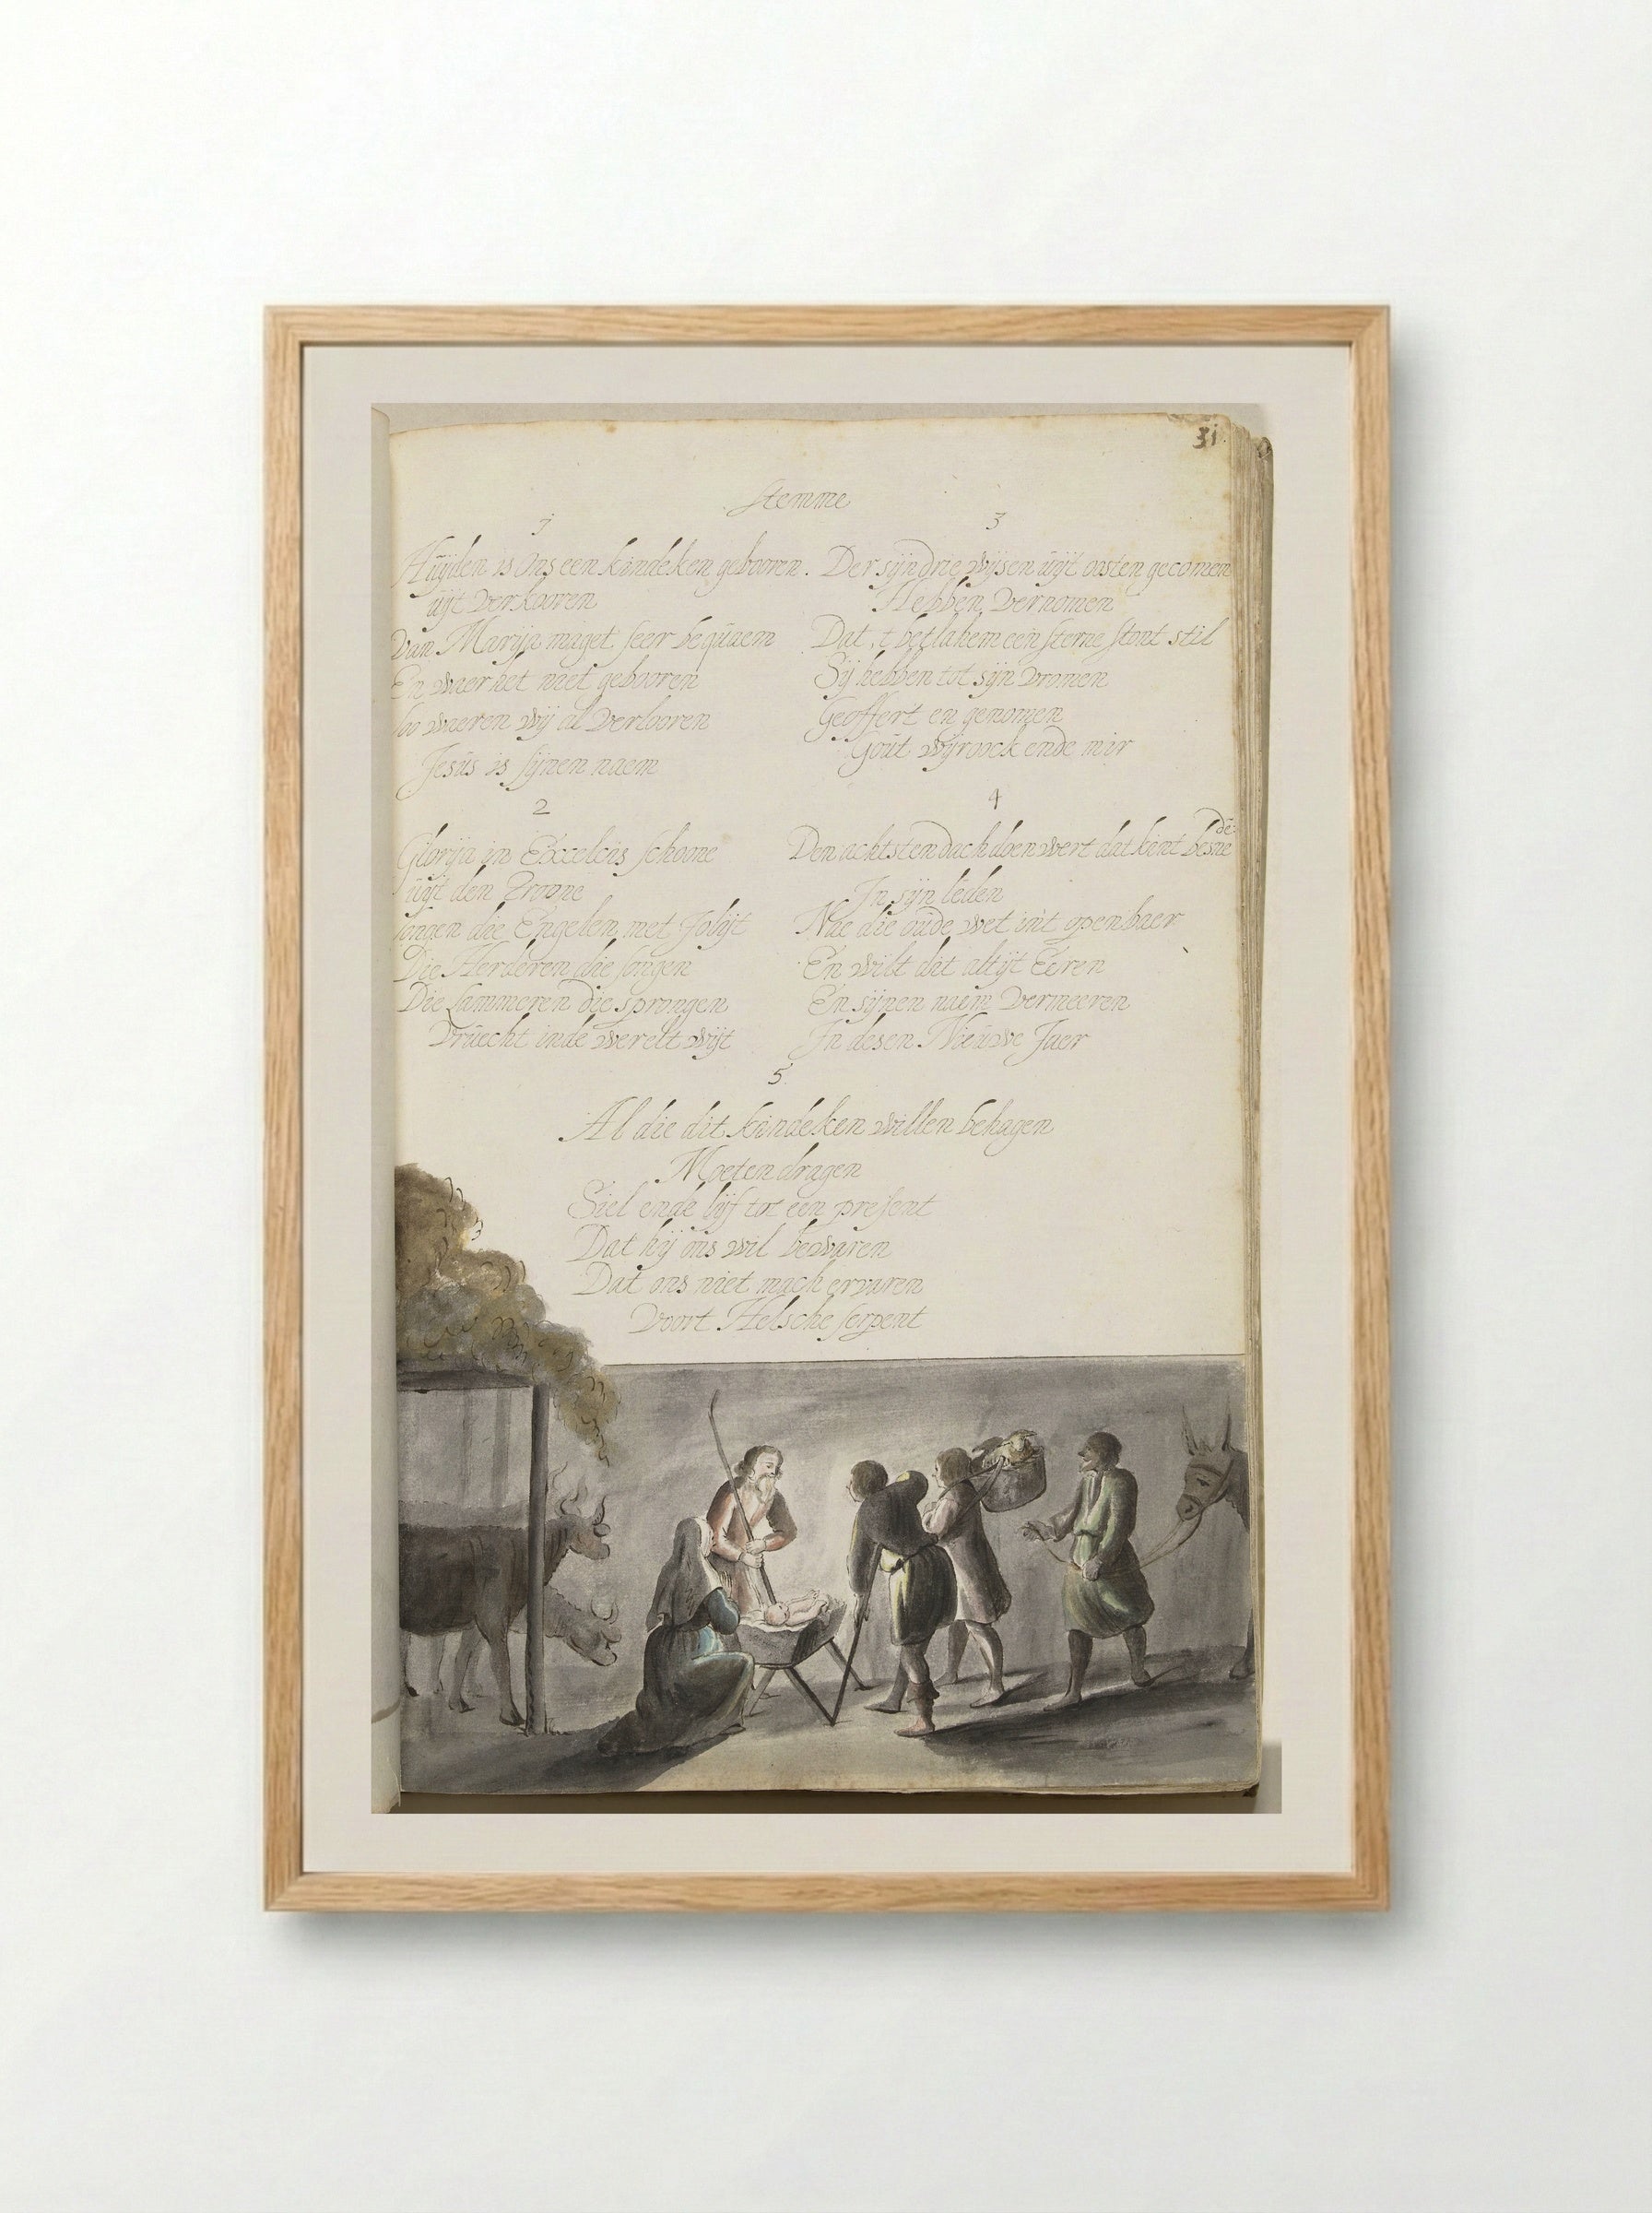 31
Stemme
1
Huyden is ons een kindeken gebooren.
uijt verkooren
van Marija maget seer bequaem
En waer het niet gebooren
soo waeren wij al verlooren
Jesus is sijnen naem
2
Glorija in Excelcis schoone
uijt den Troone
songen die Engelen met Jolijt
Die Herderen die songen
Die Lammeren die sprongen
Vruecht inde werelt wijt
3
Der sijn drie wijsen uijt oosten gecomen
Hebben vernomen
Dat t betlahem een sterne stont stil
Sij hebben tot sijn vromen
Geoffert en genomen
Gout wijroock ende mir
4
Den achtsten dach doen wert dat kint besne
de
In sijn leden
Nae die oude wet int openbaer
En wilt dit altijt Eeren
En sijnen naem vermeeren
In desen Nieuwe Jaer
5
Al die dit kindeken willen behagen
Moeten dragen
Siel ende lijf tot een present
Dat hij ons wil bewaren
Dat ons niet mach ervaren
Voort Helsche serpent